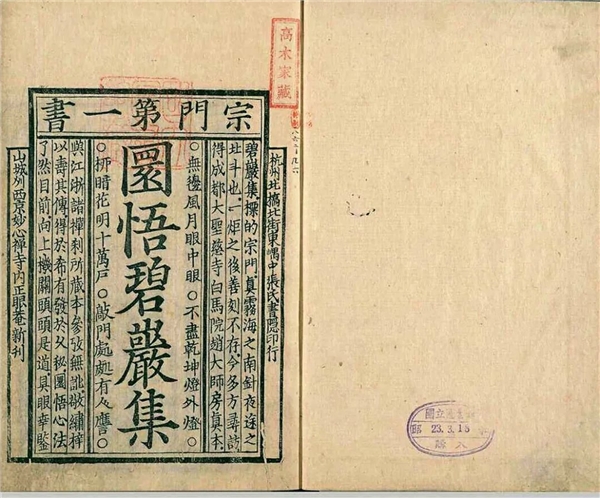 高木家藏
宗門第一書
杭州北橋北街東嵎中張氏書隱印行
碧巖集標的宗門真霧海之南針夜途之
北斗也一炬之後善刻不存今多方尋訪
得成都大聖慈寺白馬院趙大師房真本
○無邊風月眼中眼○不盡乾坤燈外燈○
圜悟碧巖集
○柳暗花明十萬戶○敲門處處有人應○
與江浙諸禪刹所藏本參攷無訛敬繡梓
以壽其傳得於希有發於久秘圜悟心法
了然目前向上機關頭頭是道具眼幸鑒
山城州西京妙心禪寺內正眼菴新刊
國立
23.3.15
購入